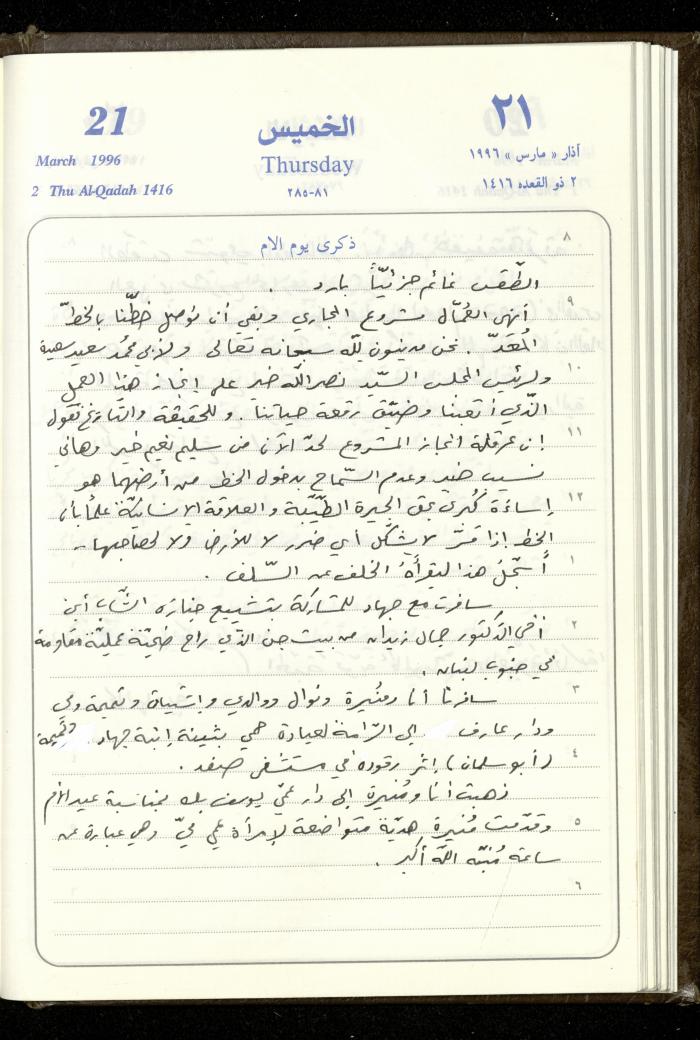 21
March 1996
2 Thu Al-Qadah 1416
الخميس
Thursday
٢٨٥-٨١
٢١
آذار « مارس » ١٩٩٦
٢ ذو القعده ١٤١٦
ذكرى يوم الام
٨
الطّقس غائم جزئيّاً بارد .
٩
أنهى العُمّال مشروع المجاري وبقي أن نوصل خطّنا بالخطّ
المُعَدّ. نحن مدينون لله سبحانه تعالى ولأبي محمّد سعيد
١٠
ولرئيس المجلس السّيّد نصرالله خير على إنجاز هذا العمل
الّذي أتعبنا وضيّق رقعة حياتنا. وللحقيقة والتاريخ نقول
١١
إن عرقلة انجاز المشروع لحدّ الآن من سليم نعيم خير وهاني
نسيب خير وعدم السّماح بدخول الخط من أرضهما هو
١٢
إساءة كُبرى بحق الجيرة الطّيّبة والعلاقة الإنسانيّة علماً بأن
الخط إذا مَرّ لا يشكّل أي ضرر لا للأرض ولا لصاحبها -
١
أُسجّلُ هذا ليقرأَهُ الخلف عن السّلف .
سافرت مع جهاد للمشاركة بتشييع جنازه الشّاب أبن
٢
أخي الدّكتور جمال زيدان من بيت جن الذّي راح ضحيّة عمليّة مقاومة
في جنوب لبنان .
٣
سافرنا أنا ومُنيرة ونوال ووالدي واشتياق وتميمة ومي
ودار عارف إلى الرّامة لعيادة حمي بثينة إبنة جهاد وتميمة
٤
(أبو سلمان) إثر رقوده في مستشفى صفد .
ذهبت أنا ومُنيرة إلى دار عمّي يوسف بك بمناسبة عيد الأم
٥
وقدّمت مُنيرة هديّة متواضعة لإمرأة عمي مي وهي عبارة عن
ساعة مُنبّه الله أكبر .
٦